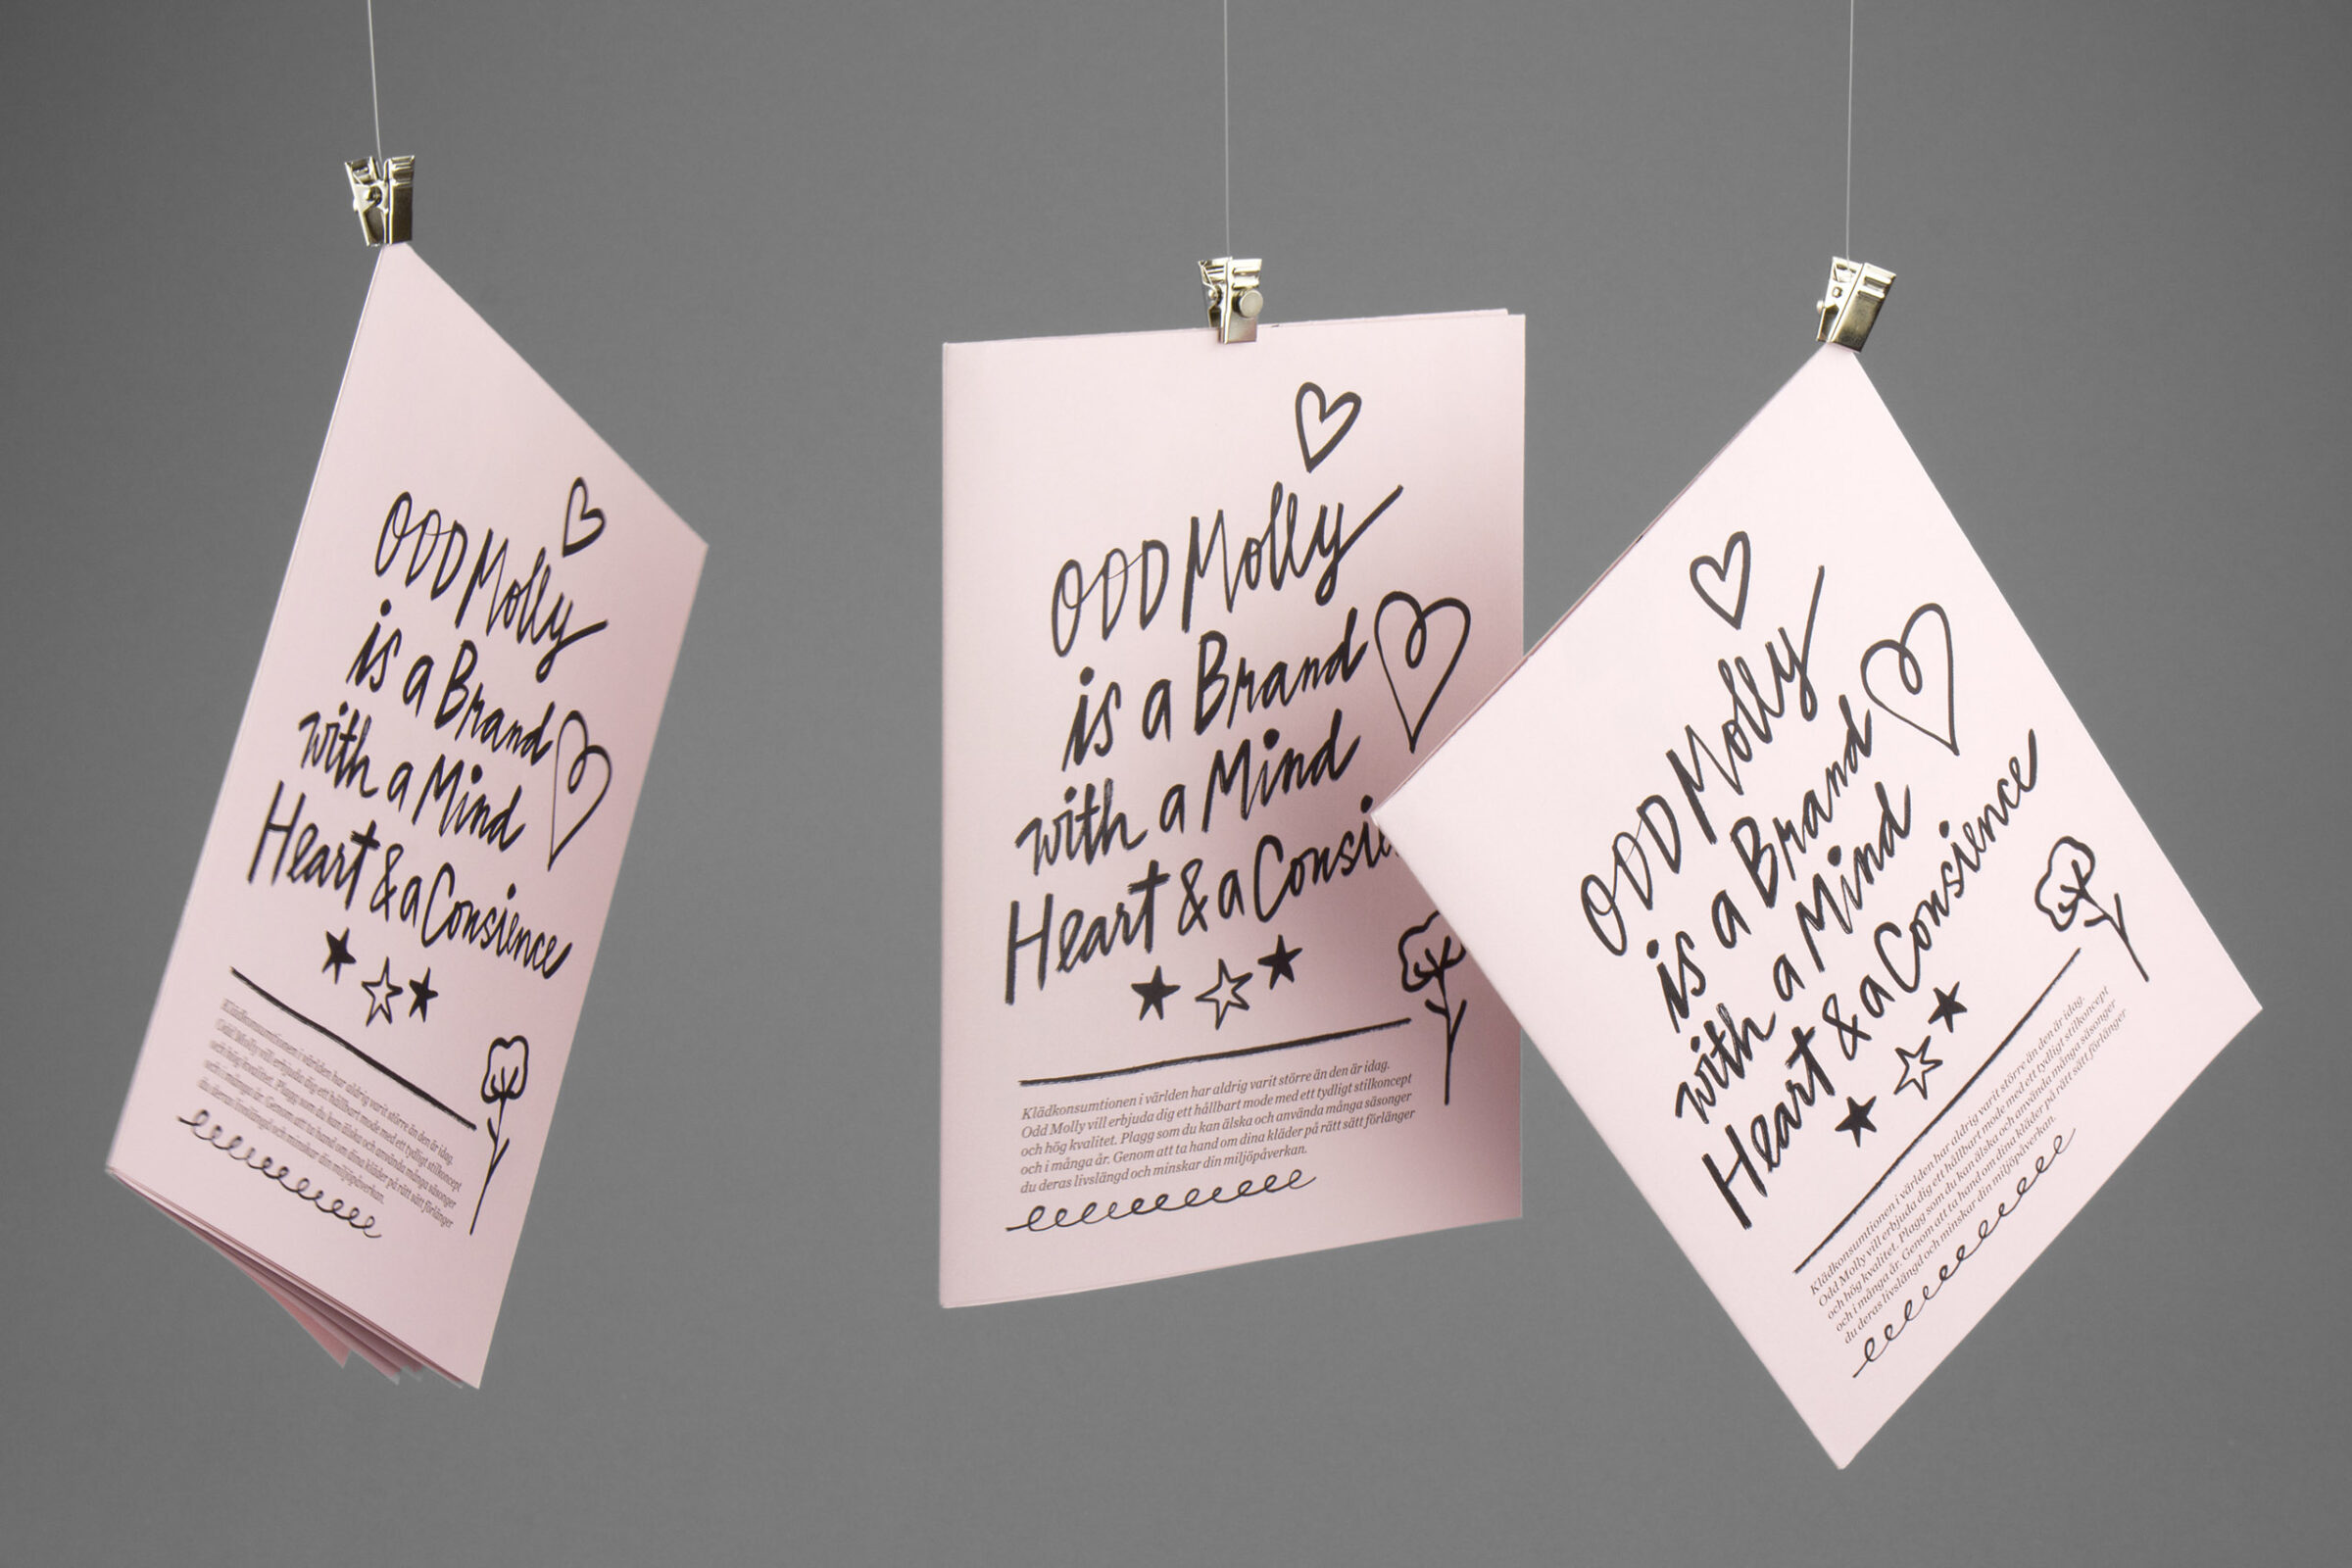 ODD Molly
is a Brand
with a Mind
Heart & a Consience
Klädkonsumtionen i världen har aldrig varit större än den är idag.
Odd Molly vill erbjuda dig ett hållbart mode med ett tydligt stilkoncept
och hög kvalitet. Plagg som du kan älska och använda många säsonger
och i många år. Genom att ta hand om dina kläder på rätt sätt förlänger
du deras livslängd och minskar din miljöpåverkan.
ODD Molly
is a Brand
with a Mind
Heart & a Consi
Klädkonsumtionen i världen har aldrig varit större än den är idag.
Odd Molly vill erbjuda dig ett hållbart mode med ett tydligt stilkoncept
och hög kvalitet. Plagg som du kan älska och använda många säsonger
och i många år. Genom att ta hand om dina kläder på rätt sätt förlänger
du deras livslängd och minskar din miljöpåverkan.
ODD Molly
is a Brand
with a Mind
Heart & a Consience
Klädkonsumtionen i världen har aldrig varit större än den är idag.
Odd Molly vill erbjuda dig ett hållbart mode med ett tydligt stilkoncept
och hög kvalitet. Plagg som du kan älska och använda många säsonger
och i många år. Genom att ta hand om dina kläder på rätt sätt förlänger
du deras livslängd och minskar din miljöpåverkan.